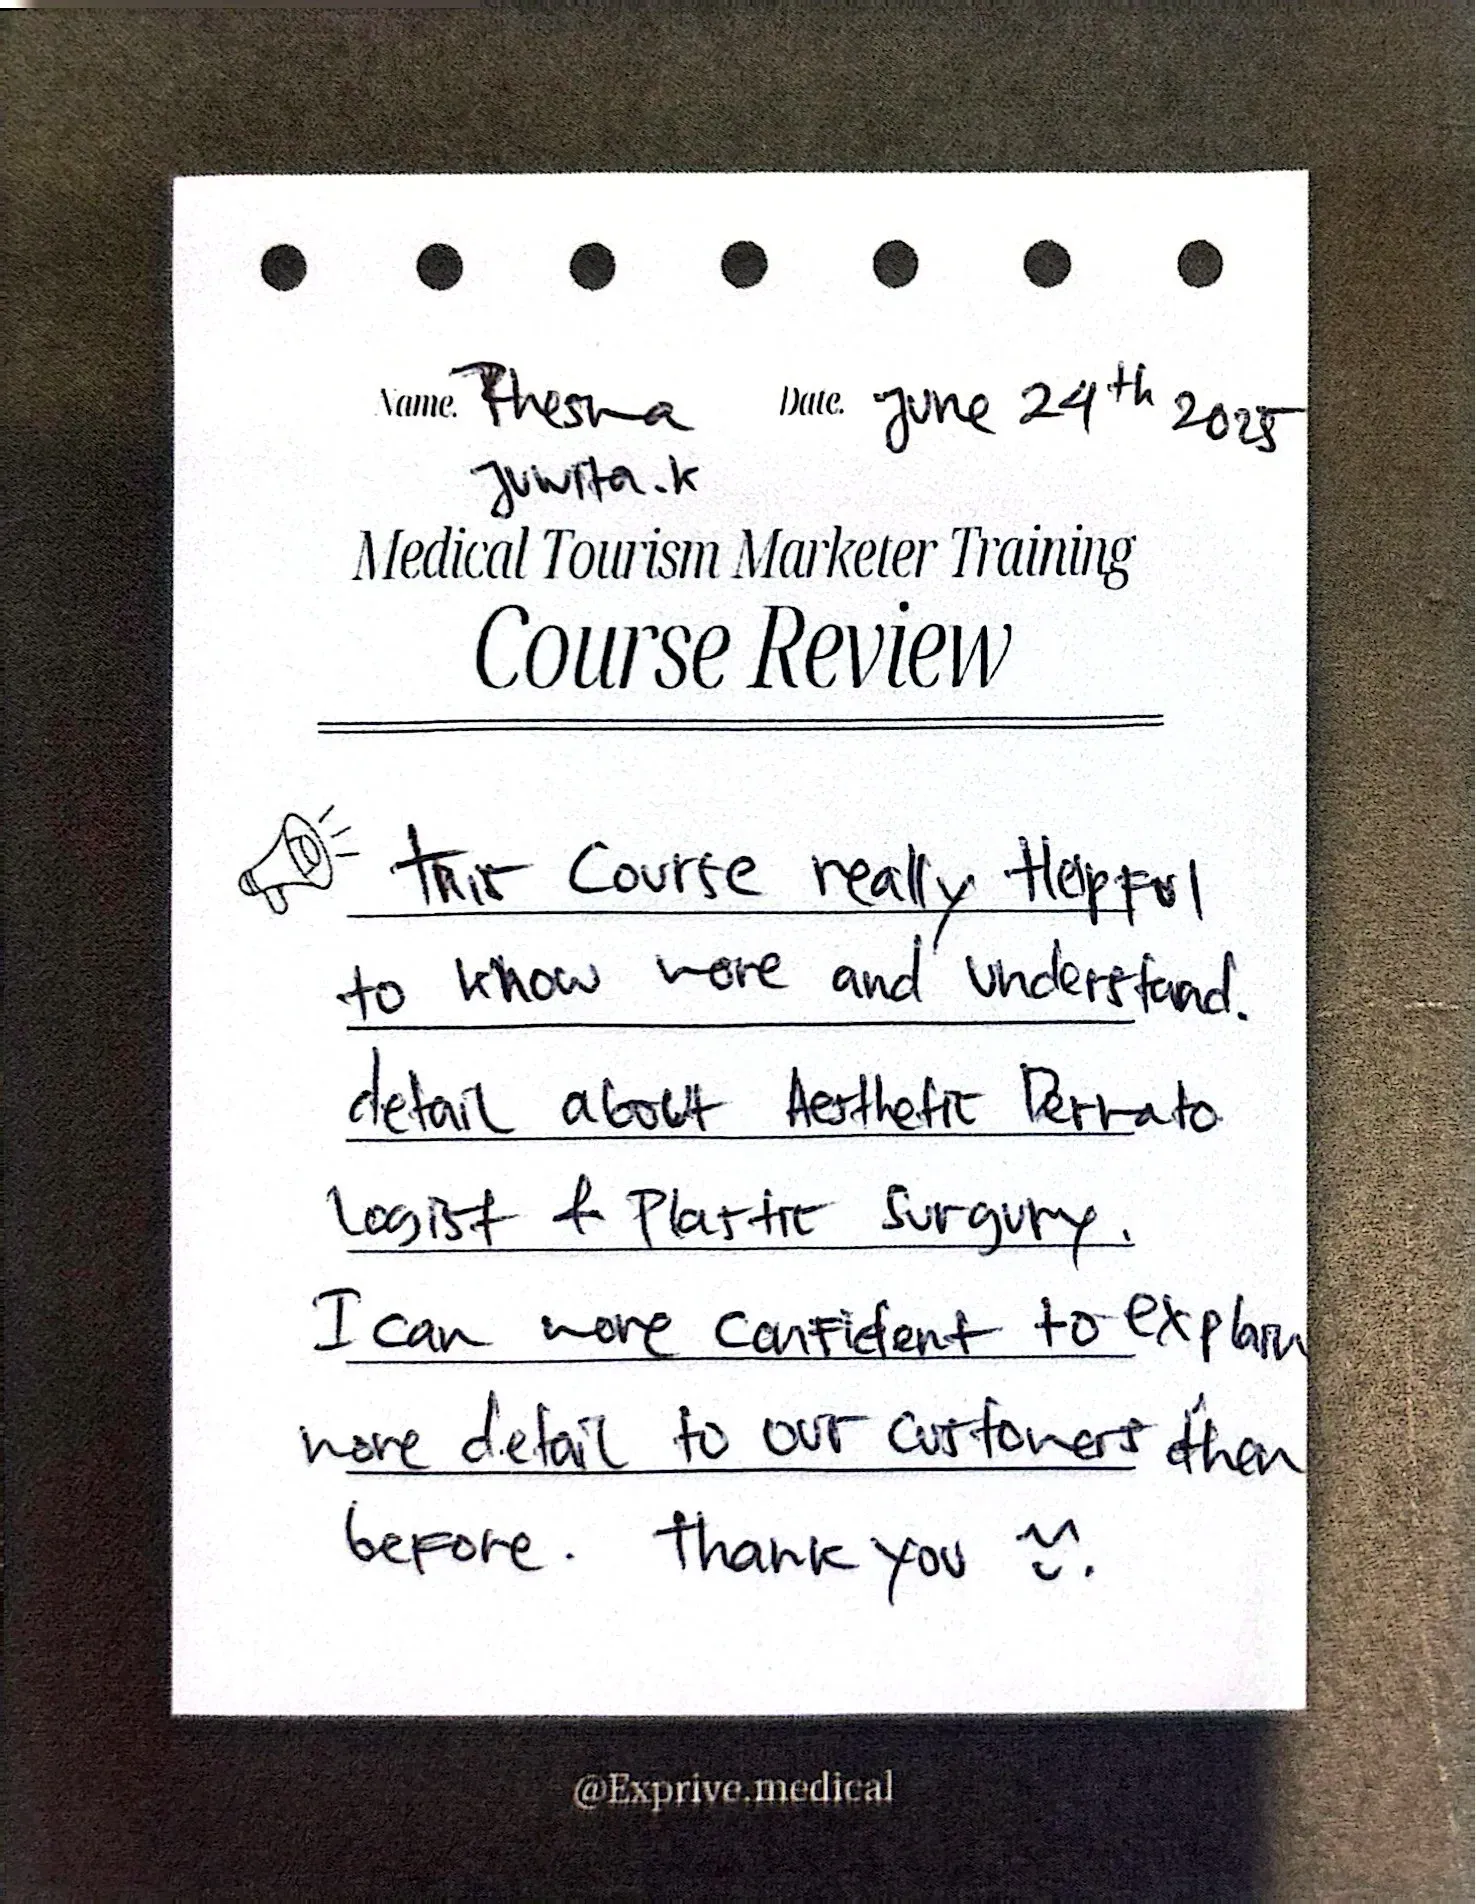 Name. Rhesma Date. June 24th 2025
Juwita.k
Medical Tourism Marketer Training
Course Review
This Course really Helpful
to know more and understand.
detail about Aesthetic Dermato
Logist & Plastic Surgury.
I can more confident to explain
more detail to our customers then
before. Thank you
@Exprive.medical